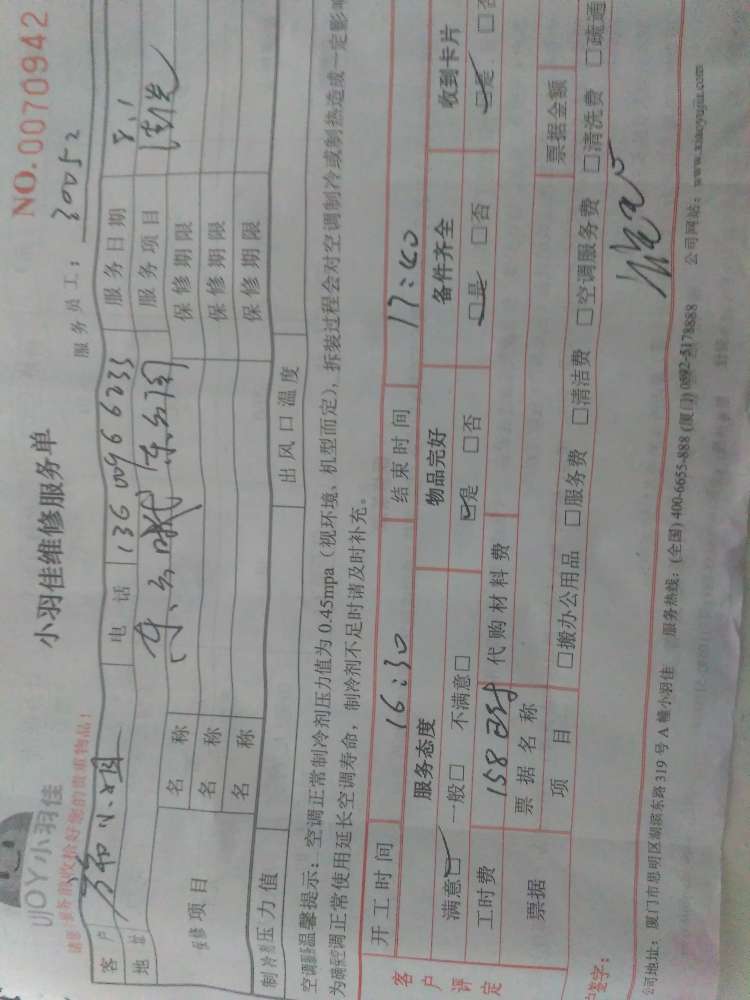 UJOY小羽佳
小羽佳维修服务单
NO.0070942
请您务必收拾好您的贵重物品!
服务员工: 30052
客户 小姐 电话 13600966233 服务日期
地 东方时代 服务项目 清洗
维修项目 名称 保修期限
名称 保修期限
名称 保修期限
制冷剂压力值 出风口温度
空调温馨提示:空调正常制冷剂压力值为 0.45mpa(视环境、机型而定),拆装过程会对空调制冷或制热造成一定影响
为确保空调正常使用延长空调寿命,制冷剂不足时请及时补充。
客户评定
开工时间 16:30 结束时间 17:40
服务态度 物品完好 备件齐全 收到卡片
满意□ 一般□ 不满意□ □是 □否 □是 □否 □是 □否
工时费 158 代购材料费
票据 票据名称 票据金额
项目 □搬办公用品 □服务费 □清洁费 □空调服务费 □清洗费 □疏通
签字:
公司地址:厦门市思明区湖滨东路 319 号 A 幢小羽佳 服务热线:(全国) 400-6655-888 (厦门) 0592-5178888 公司网站:www.xiaoyujia.com